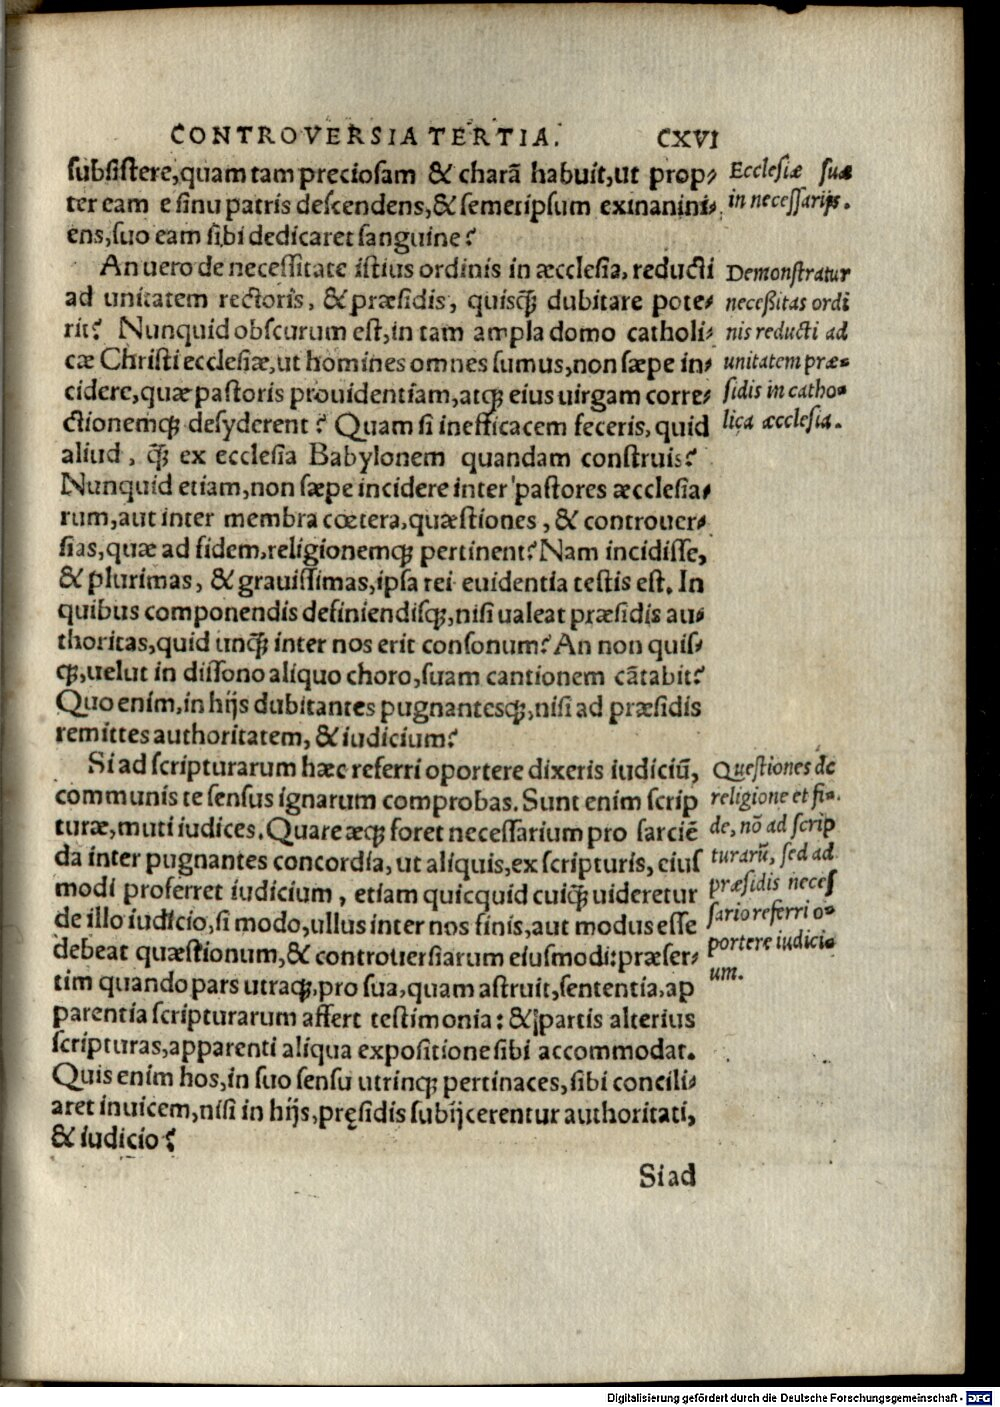 CONTROVERSIA TERTIA. CXVI
subsistere,quam tam preciosam & charã habuit,ut prop-
ter eam e sinu patris descendens,& semetipsum exinanini-
ens,suo eam sibi dedicaret sanguine?
Ecclesiæ suæ
in necessarijs.
An uero de necessitate istius ordinis in æcclesia, reducti
ad unitatem rectoris, & præsidis, quisq̃ dubitare pote-
rit? Nunquid obscurum est,in tam ampla domo catholi-
cæ Christi ecclesiæ,ut homines omnes sumus,non sæpe in-
cidere,quæ pastoris prouidentiam,atq; eius uirgam corre-
ctionemq; desyderent? Quam si inefficacem feceris, quid
aliud, q̃ ex ecclesia Babylonem quandam construis?
Nunquid etiam,non sæpe incidere inter pastores æcclesia-
rum,aut inter membra cœtera,quæstiones, & controuer-
sias,quæ ad fidem,religionemq; pertinent? Nam incidisse,
& plurimas, & grauissimas,ipsa rei euidentia testis est. In
quibus componendis definiendisq;,nisi ualeat præsidis au-
thoritas,quid unq̃ inter nos erit consonum? An non quis-
q;,uelut in dissono aliquo choro,suam cantionem cãtabit?
Quo enim,in hijs dubitantes pugnantesq;,nisi ad præsidis
remittes authoritatem, & iudicium?
Demonstratur
necessitas ordi
nis reducti ad
unitatem præ-
sidis in catho-
lica æcclesia.
Si ad scripturarum hæc referri oportere dixeris iudiciũ,
communis te sensus ignarum comprobas. Sunt enim scrip
turæ,muti iudices. Quare æq; foret necessarium pro sarciẽ
da inter pugnantes concordia, ut aliquis,ex scripturis, eius
modi proferret iudicium, etiam quicquid cuiq̃ uideretur
de illo iudicio,si modo,ullus inter nos finis,aut modus esse
debeat quæstionum,& controuersiarum eiusmodi:præser-
tim quando pars utraq;,pro sua,quam astruit,sententia,ap
parentia scripturarum affert testimonia: & partis alterius
scripturas,apparenti aliqua expositione sibi accommodat.
Quis enim hos,in suo sensu utrinq; pertinaces,sibi concili-
aret inuicem,nisi in hijs,pręsidis subijcerentur authoritati,
& iudicio?
Questiones de
religione et fi-
de, nõ ad scrip
turarũ, sed ad
præsidis neces
sario referri o-
portere iudici-
um.
Si ad
Digitalisierung gefördert durch die Deutsche Forschungsgemeinschaft - DFG